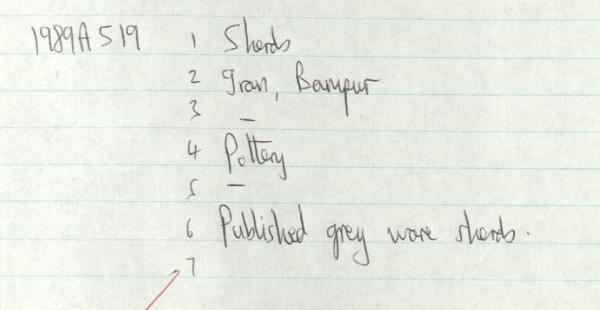 1989A519 1 Sherds
2 Iran, Bampur
3 –
4 Pottery
5 –
6 Published grey ware sherds.
7